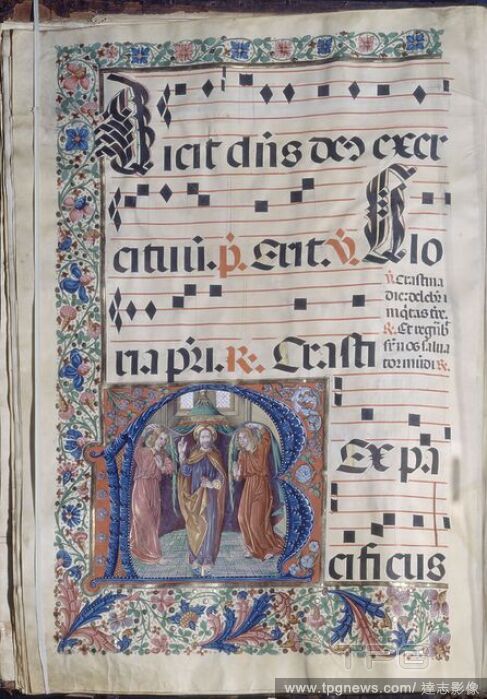 Dicit dñs deꝯ exer
cituũ. p̃. Erit. ℣. Glo
ria pr̃i. ℟. Crasti
℣. Crastina
die: delebit̃ i
niq̃tas tr̃e.
℟. Et regñb
sr̃ nos salua
tor mũdi ℟.
Rex pa
cificus
TPG
www.tpgnews.com/ 達志影像